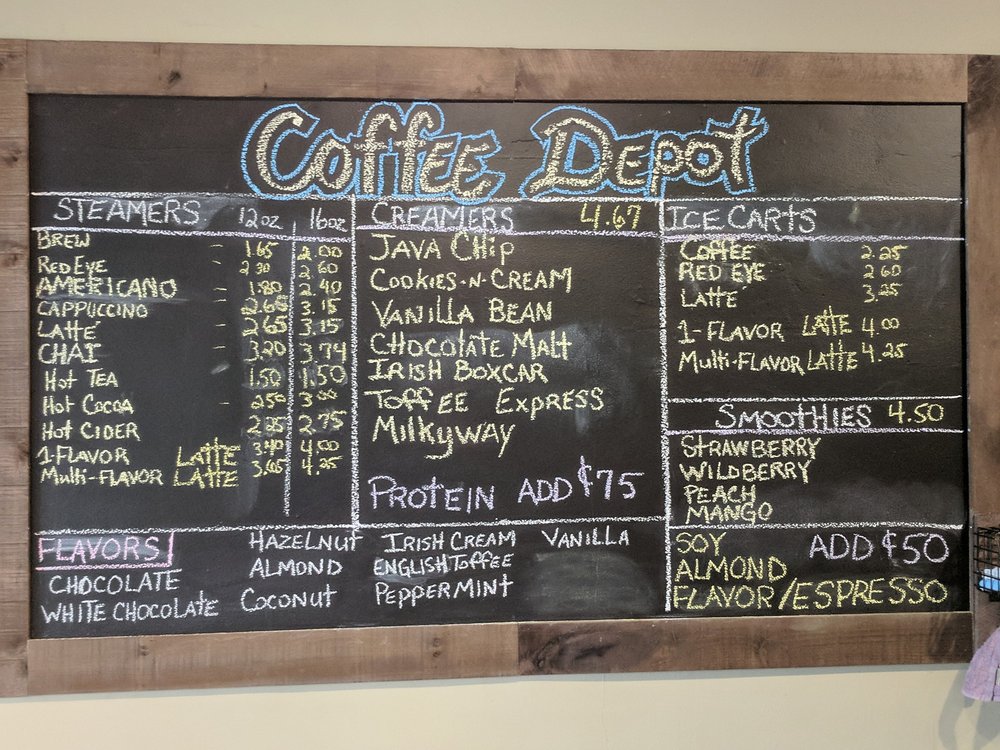 Coffee Depot
STEAMERS 12oz 16oz
BREW - 1.65 2.00
RED EYE - 2.30 2.60
AMERICANO - 1.80 2.40
CAPPUCCINO - 2.65 3.15
LATTÉ - 2.65 3.15
CHAI - 3.20 3.74
Hot TEA - 1.50 1.50
Hot COCOA - 2.50 3.00
Hot CIDER - 2.75
1-FLAVOR LATTE 4.00
Multi-FLAVOR LATTE 3.65 4.25
CREAMERS 4.67
JAVA CHip
COOKIES-N-CREAM
VANILLA BEAN
CHOCOLATE MALT
IRISH BOXCAR
TOFFEE EXPRESS
MilkyWAY
PROTEIN ADD ¢75
ICE CARTS
COFFEE 2.25
RED EYE 2.60
LATTÉ 3.25
1-FLAVOR LATTE 4.00
Multi-FLAVOR LATTE 4.25
SMOOTHIES 4.50
STRAWBERRY
WILDBERRY
PEACH
MANGO
FLAVORS HAZELNUT IRISH CREAM VANILLA
CHOCOLATE ALMOND ENGLISH TOFFEE
WHITE CHOCOLATE COCONUT PEPPERMINT
SOY ADD ¢50
ALMOND
FLAVOR/ESPRESSO